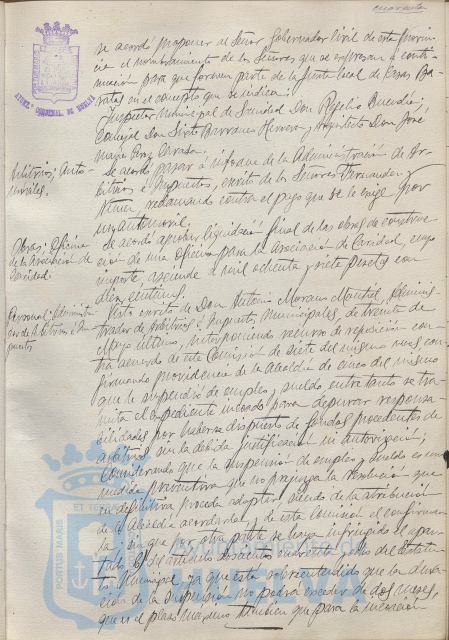 cuarenta
se acordó proponer al Señor Gobernador Civil de esta Provin-
cia el nombramiento de los Señores que se expresan a conti-
nuación para que formen parte de la Junta local de Casas Ba-
ratas, en el concepto que se indica:
Inspector Municipal de Sanidad Don Rogelio Buendía;
Concejal Don Sixto Barranco Herrera; Arquitecto Don José
María Pérez Carasa.
Arbitrios; Auto-
móviles.
Se acordó pasar a informe de la Administración de Ar-
bitrios e Impuestos, escrito de los Señores Fernandez y
reclamando contra el pago que se le exige por
un automovil.
Obras; Oficina
de la Asociación de
Caridad.
Se acordó aprobar liquidación final de las obras de construc-
ción de una Oficina para la Asociación de Caridad, cuyo
importe asciende a mil ochenta y siete pesetas con
diez centimos.
Personal; Administra-
dor de Arbitrios e Im-
puestos
Visto escrito de Don Antonio Moreno Adminis-
trador de Arbitrios e Impuestos Municipales, de veinte de
Mayo último, interponiendo recurso de reposición con-
tra acuerdo de esta Comisión de siete del mismo mes con-
firmando providencia de la Alcaldía de cinco del mismo
que le suspendió de empleo y sueldo entre tanto se tra-
mita el expediente incoado para depurar responsa-
bilidades por haberse dispuesto de fondos procedentes de
arbitrios sin la debida justificación ni autorización;
Considerando que la suspensión de empleo y sueldo es una
medida preventiva que no prejuzga la resolución que
en definitiva proceda adoptar siendo de la atribución
de la Alcaldía acordarla, y de esta Comisión el confirmar-
la, sin que por otra parte se haya infringido el apar-
tado del artículo doscientos cuarenta y ocho del Estatu-
to Municipal, ya que está sobreentendido que la dura-
ción de la suspensión no podrá exceder de dos meses,
que es el plazo máximo también que para la incoación